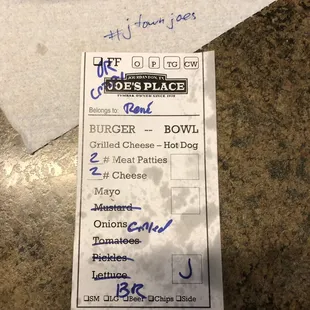 #1 jtownjoes
☐ FF O P TG CW
OR
JOURDANTON, TX
JOE'S PLACE
Belongs to: René
BURGER -- BOWL
Grilled Cheese – Hot Dog
2 # Meat Patties
2 # Cheese
Mayo
Mustard
Onions Grilled
Tomatoes
Pickles
Lettuce J
BR
☐SM ☐LG ☐Beer ☐Chips ☐Side